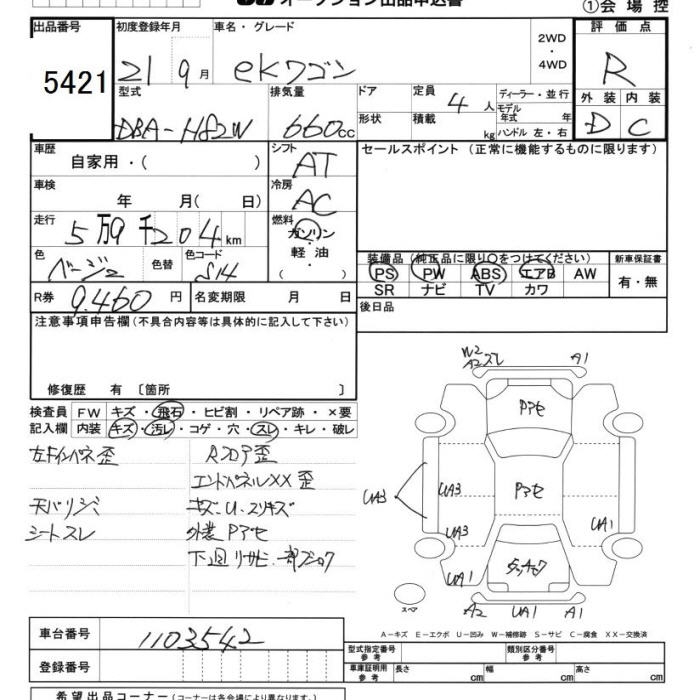 オークション出品申込書
①会場控
出品番号 5421
初度登録年月 21 9月
車名・グレード ekワゴン
2WD・4WD
評価点 R
型式 DBA-H82W
排気量 660cc
ドア 形状
定員 4人
積載 kg
ディーラー・並行
モデル年式 年
ハンドル 左・右
外装 D 内装 C
車歴 自家用・( )
シフト AT
セールスポイント(正常に機能するものに限ります)
車検 年 月( 日)
冷房 AC
走行 5万9千204km
燃料 ガソリン・軽油・( )
色 ベージュ 色替 色コード S14
装備品(純正品に限り○をつけてください)
PS PW ABS エアB AW
SR ナビ TV カワ
新車保証書 有・無
R券 9.460円 名変期限 月 日
後日品
注意事項申告欄(不具合内容等は具体的に記入して下さい)
修復歴 有〔箇所 〕
検査員記入欄
FW キズ・飛石・ヒビ割・リペア跡・×要
内装 キズ・汚レ・コゲ・穴・スレ・キレ・破レ
左ドインパネ歪 Rフロア歪
エンドパネルXX歪
天バリジミ キズ.U.スリキズ
シートスレ 外装Pアセ
下廻リサビ.一部フショク
W2
A2スレ A1
Pアセ
Pアセ
UA3 UA3
UA3 UA1
UA1
A2 UA1 A1
スペア
A-キズ E-エクボ U-凹み W-補修跡 S-サビ C-腐食 XX-交換済
車台番号 1103542
登録番号
型式指定番号 参考 類別区分番号 参考
車庫証明用 参考 長さ cm 幅 cm 高さ cm
希望出品コーナー(コーナーは各会場により異なります。)